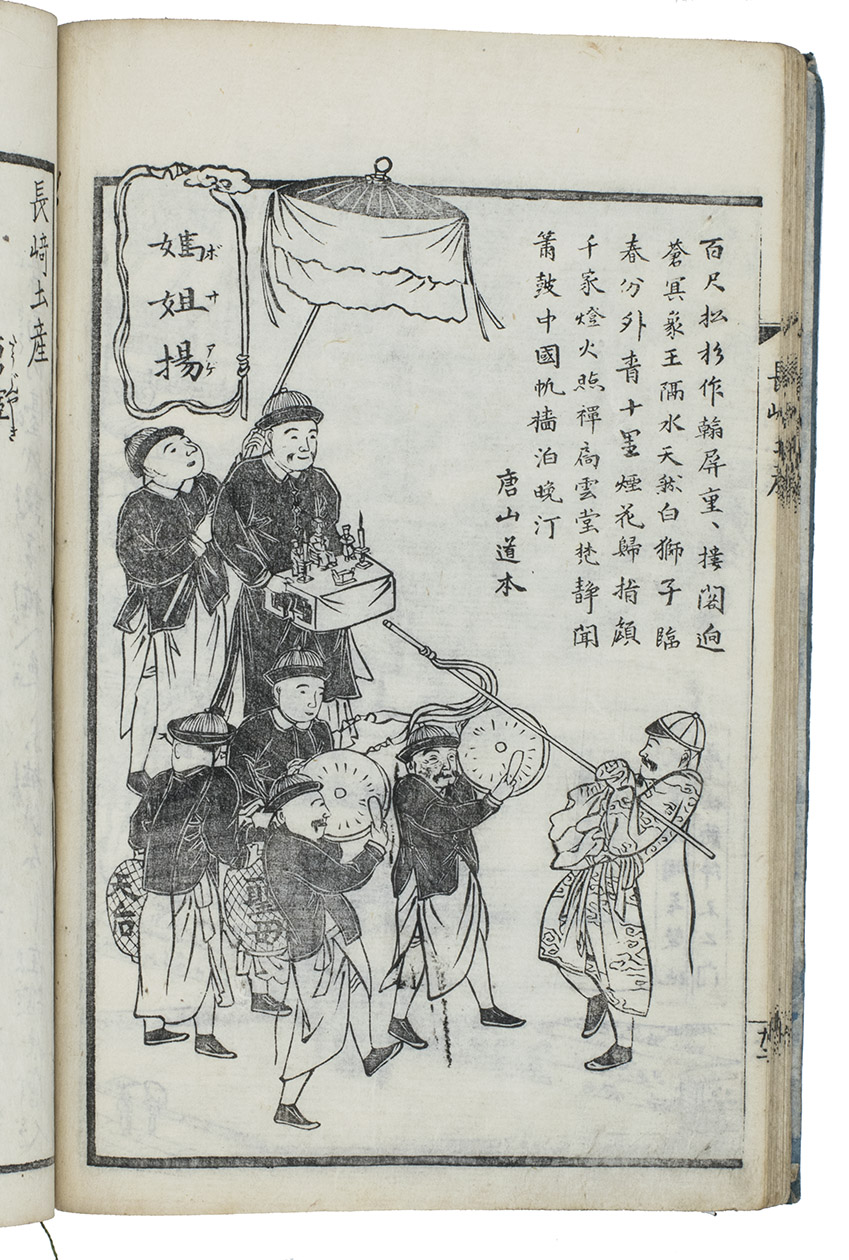 長崎土産
十二
百尺松杉作翰屏重、樓閣逈
蒼冥象王隔水天然白獅子臨
春分外青十里煙花歸指顧
千家燈火照禪扃雲堂梵静聞
簫鼓中國帆檣泊晩汀
唐山道本
媽姐揚
ボサアゲ
天后
聖
長崎土産